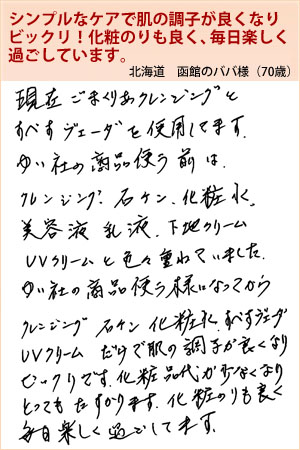 シンプルなケアで肌の調子が良くなり
ビックリ！化粧のりも良く、毎日楽しく
過ごしています。
北海道　函館のババ様（70歳）
現在ごまくりあクレンジングと
すべすヴェーダを使用してます.
ゆい社の商品使う前は.
クレンジング. 石ケン. 化粧水.
美容液 乳液. 下地クリーム
UVクリームと色々重ねていました.
ゆい社の商品使う様になってから
クレンジング 石ケン 化粧水. すべすヴェーダ
UVクリーム だけで肌の調子が良くなり
ビックリです. 化粧品代が少なくなり
とってもたすかります. 化粧のりも良く
毎日楽しく過ごしてます.